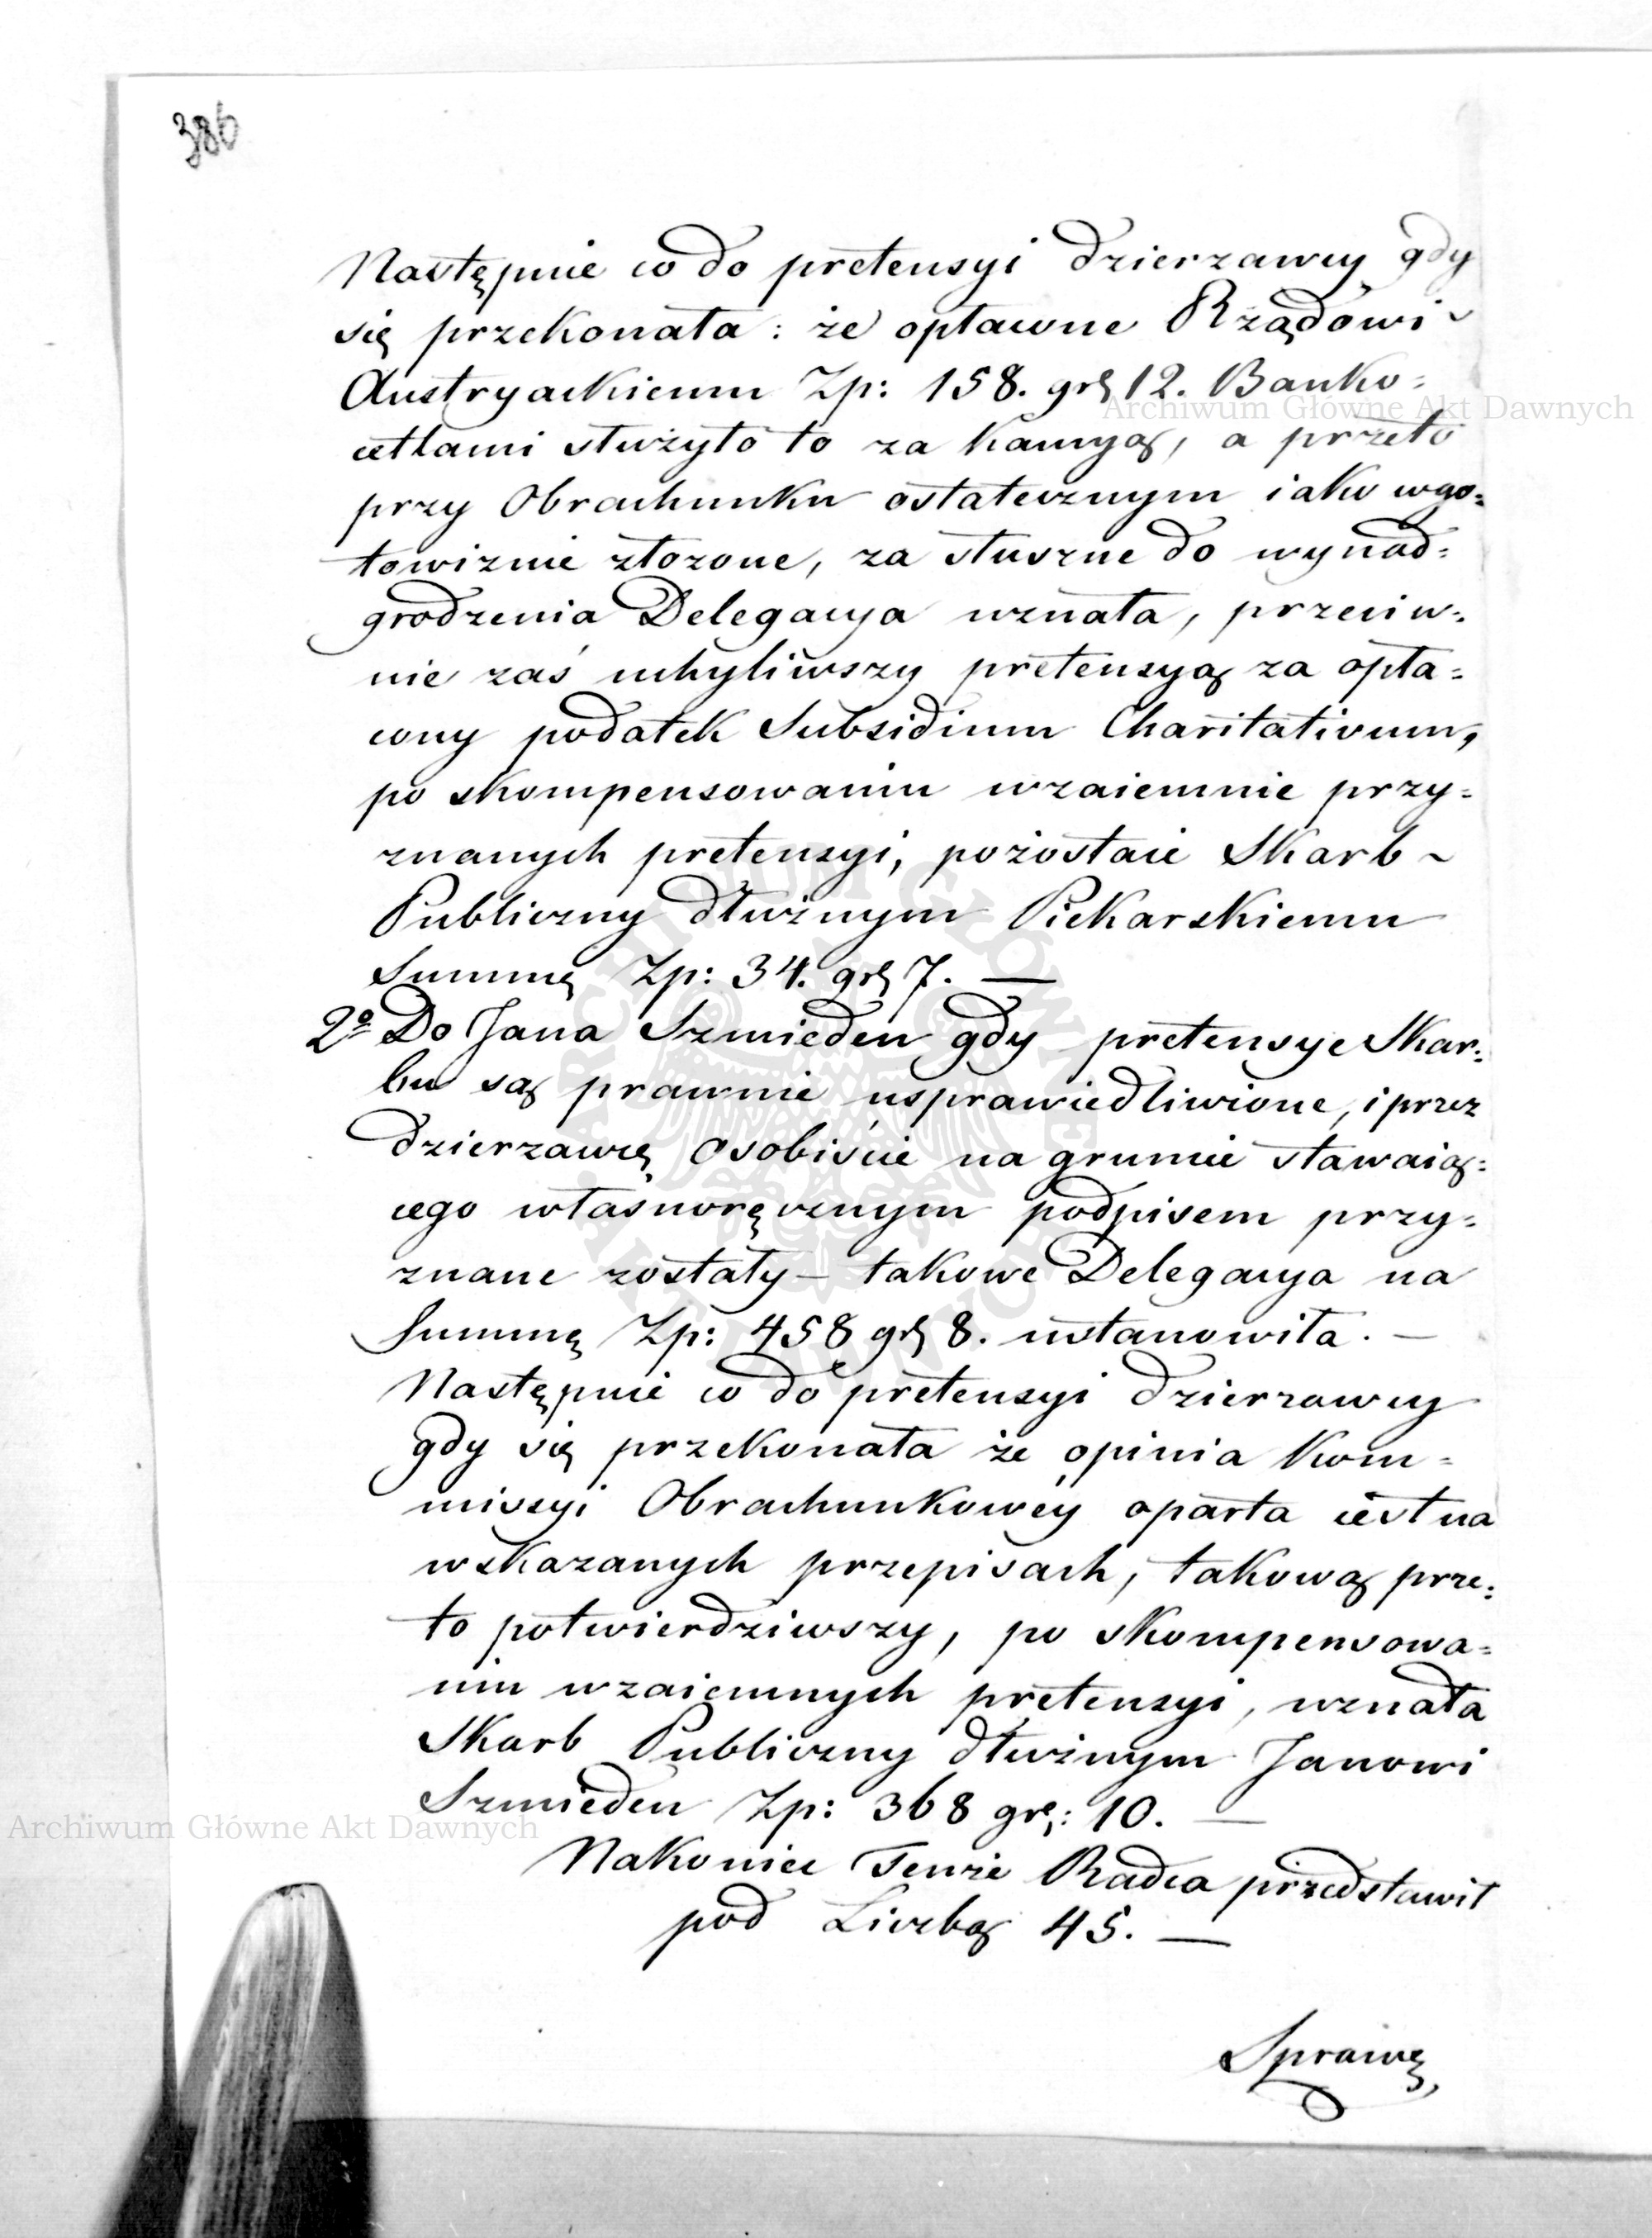 386
Następnie co do pretensyi dzierzawcy gdy
się przekonała: że opłacone Rządowi
Austryackiemu Zp: 158. gr 12. Banko=
cetlami służyło to za kaucyą, a przeto
przy Obrachunku ostatecznym iako wgo=
towiznie złozone, za słuszne do wynad=
grodzenia Delegacya uznała, przeciw=
nie zaś uchyliwszy pretensyą za opła=
cony podatek Subsidium Charitativum,
po skompensowaniu wzaiemnie przy=
znanych pretensyi, pozostaie Skarb ~
Publiczny dłużnym Piekarskiemu
Summę Zp: 34. gr 7. —
2o Do Jana Szmieden gdy pretensye Skar=
bu są prawnie usprawiedliwione, i przez
dzierzawcę osobiście na gruncie stawaią=
cego własnoręcznym podpisem przy=
znane zostały — takowe Delegacya na
Summę Zp: 458 gr 8. ustanowiła. —
Następnie co do pretensyi dzierzawcy
gdy się przekonała że opinia Kom=
missyi Obrachunkowéy oparta iest na
wskazanych przepisach, takową prze=
to potwierdziwszy, po skompensowa=
niu wzaiemnych pretensyi, uznała
Skarb Publiczny dłużnym Janowi
Szmieden Zp: 368 gr: 10. —
Nakoniec Tenże Radca przedstawił
pod Liczbą 45. —
Sprawę,
Archiwum Główne Akt Dawnych
Archiwum Główne Akt Dawnych
ARCHIWUM GŁÓWNE AKT DAWNYCH